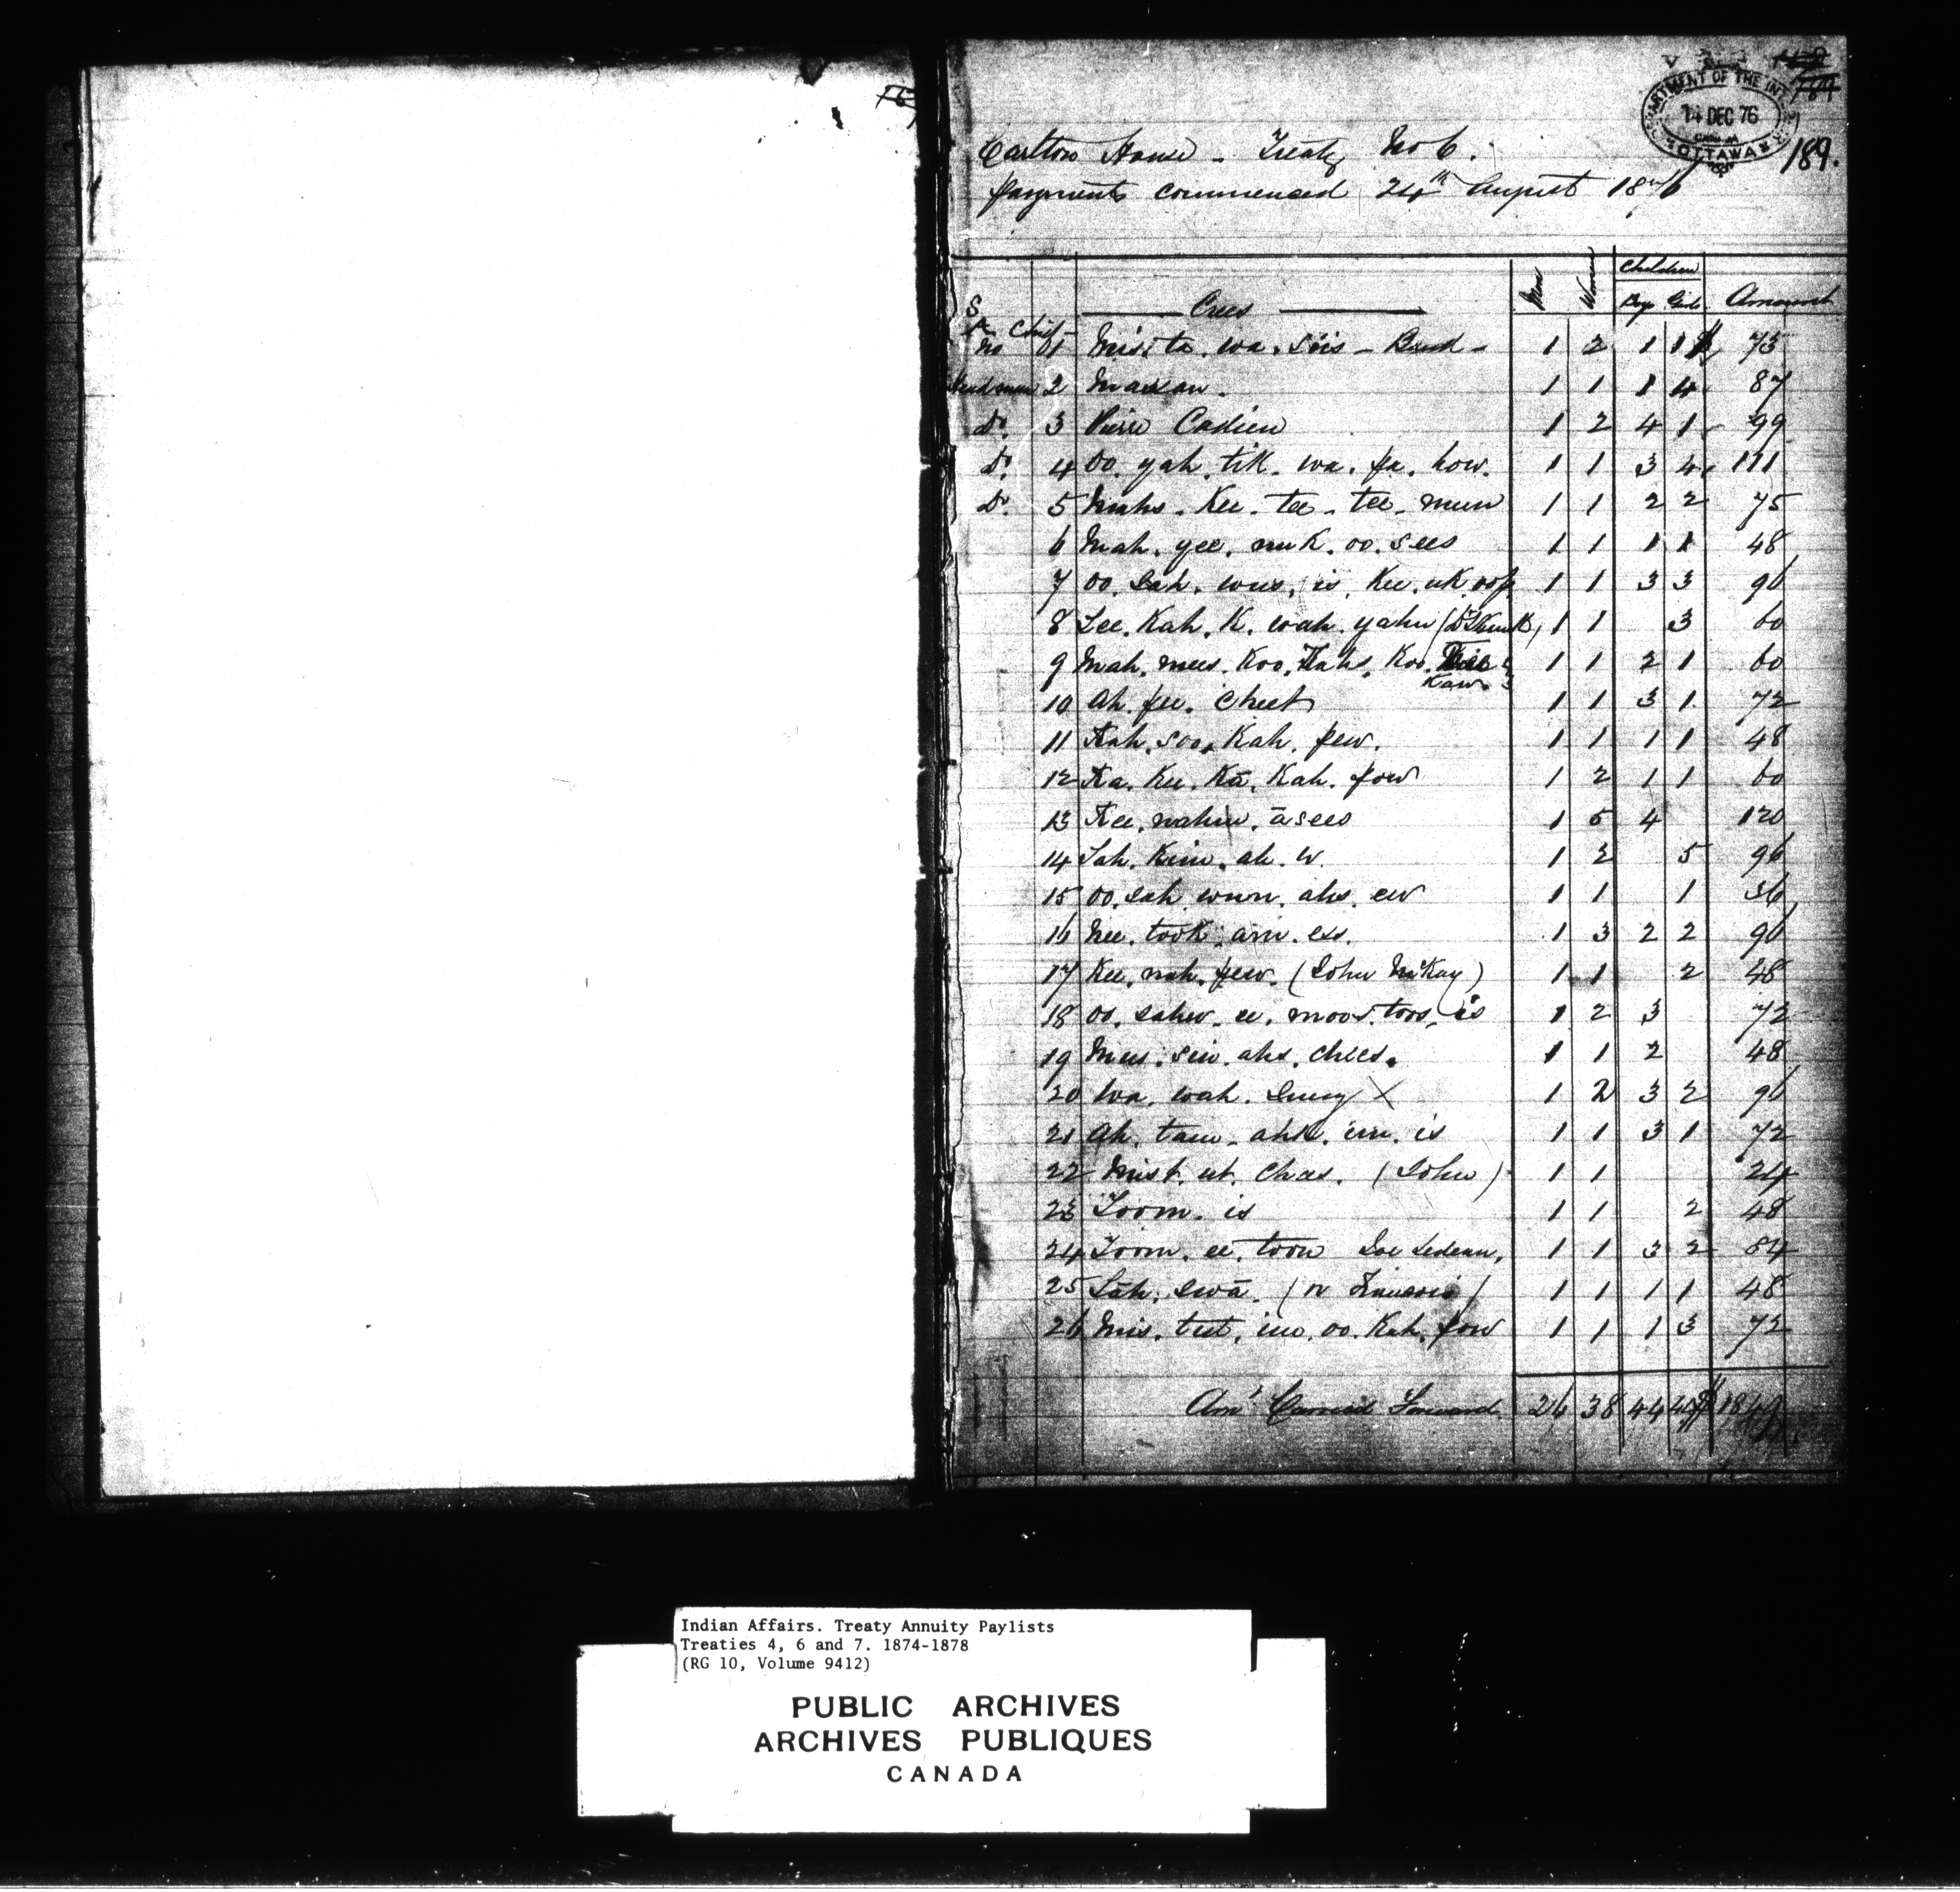 DEPARTMENT OF THE INTERIOR
14 DEC 76
CANADA
OTTAWA
189.
Carlton House - Treaty No 6.
payments commenced 24th August 1876
Men Women Children
Boys Girls Amount
Crees
Chief
No 1 Mis. ta. wa. sis - Band - 1 2 1 1 $ 75
Headman 2 Massan. 1 1 1 4 87
Do. 3 Pierre Cadien 1 2 4 1 99
Do. 4 Oo. yah. tik. wa. pa. how. 1 1 3 4 111
Do. 5 Mahs. Kee. tee. tee. mun 1 1 2 2 75
6 Mah. yee. nuk. oo. sees 1 1 1 1 48
7 Oo. sah. wus. is. Kee. uk. oop 1 1 3 3 96
8 See. Kah. K. wah. yahn 1 1 3 60
9 Mah. mees. Koo. Kahs. Koo. Kaw. 1 1 2 1 60
10 Ah. pee. Cheet 1 1 3 1 72
11 Kah. soo. Kah. pew. 1 1 1 1 48
12 Ka. Kee. Ka. Kah. pow 1 2 1 1 60
13 Kee. wahin. āsees 1 5 4 120
14 Sah. Kim. ah. w. 1 2 5 96
15 Oo. sah. wun. ahs. ew 1 1 1 36
16 Nee. took. am. ess. 1 3 2 2 96
17 Kee. nah. pew. (John McKay) 1 1 2 48
18 Oo. sahw. ee. moos. toos. is 1 2 3 72
19 Mus. sin. ahs. chees. 1 1 2 48
20 Wa. wah. X 1 2 3 2 96
21 Ah. tam. im. is 1 1 3 1 72
22 Mist. ut. chas. (John) 1 1 24
23 Toom. is 1 1 2 48
24 Toom. ee. toon 1 1 3 2 84
25 Sah. swā. 1 1 1 1 48
26 Mis. tut. im. oo. Kah. pow 1 1 1 3 72
Amt Carried Forward. 26 38 44 $1849
Indian Affairs. Treaty Annuity Paylists
Treaties 4, 6 and 7. 1874-1878
(RG 10, Volume 9412)
PUBLIC ARCHIVES
ARCHIVES PUBLIQUES
CANADA